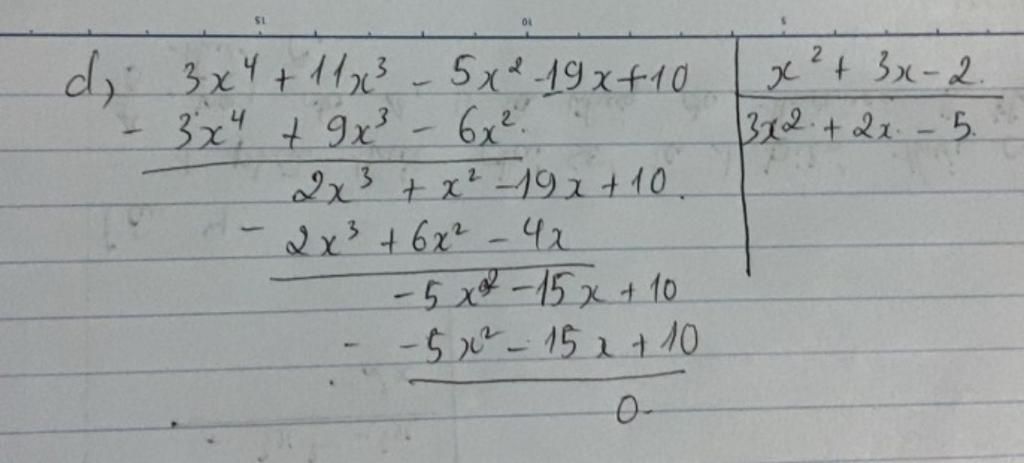 15 10 5
d, 3x⁴ + 11x³ - 5x² - 19x + 10 | x² + 3x - 2.
- 3x⁴ + 9x³ - 6x². | 3x² + 2x - 5.
2x³ + x² - 19x + 10.
- 2x³ + 6x² - 4x
-5x² - 15x + 10
- -5x² - 15x + 10
0